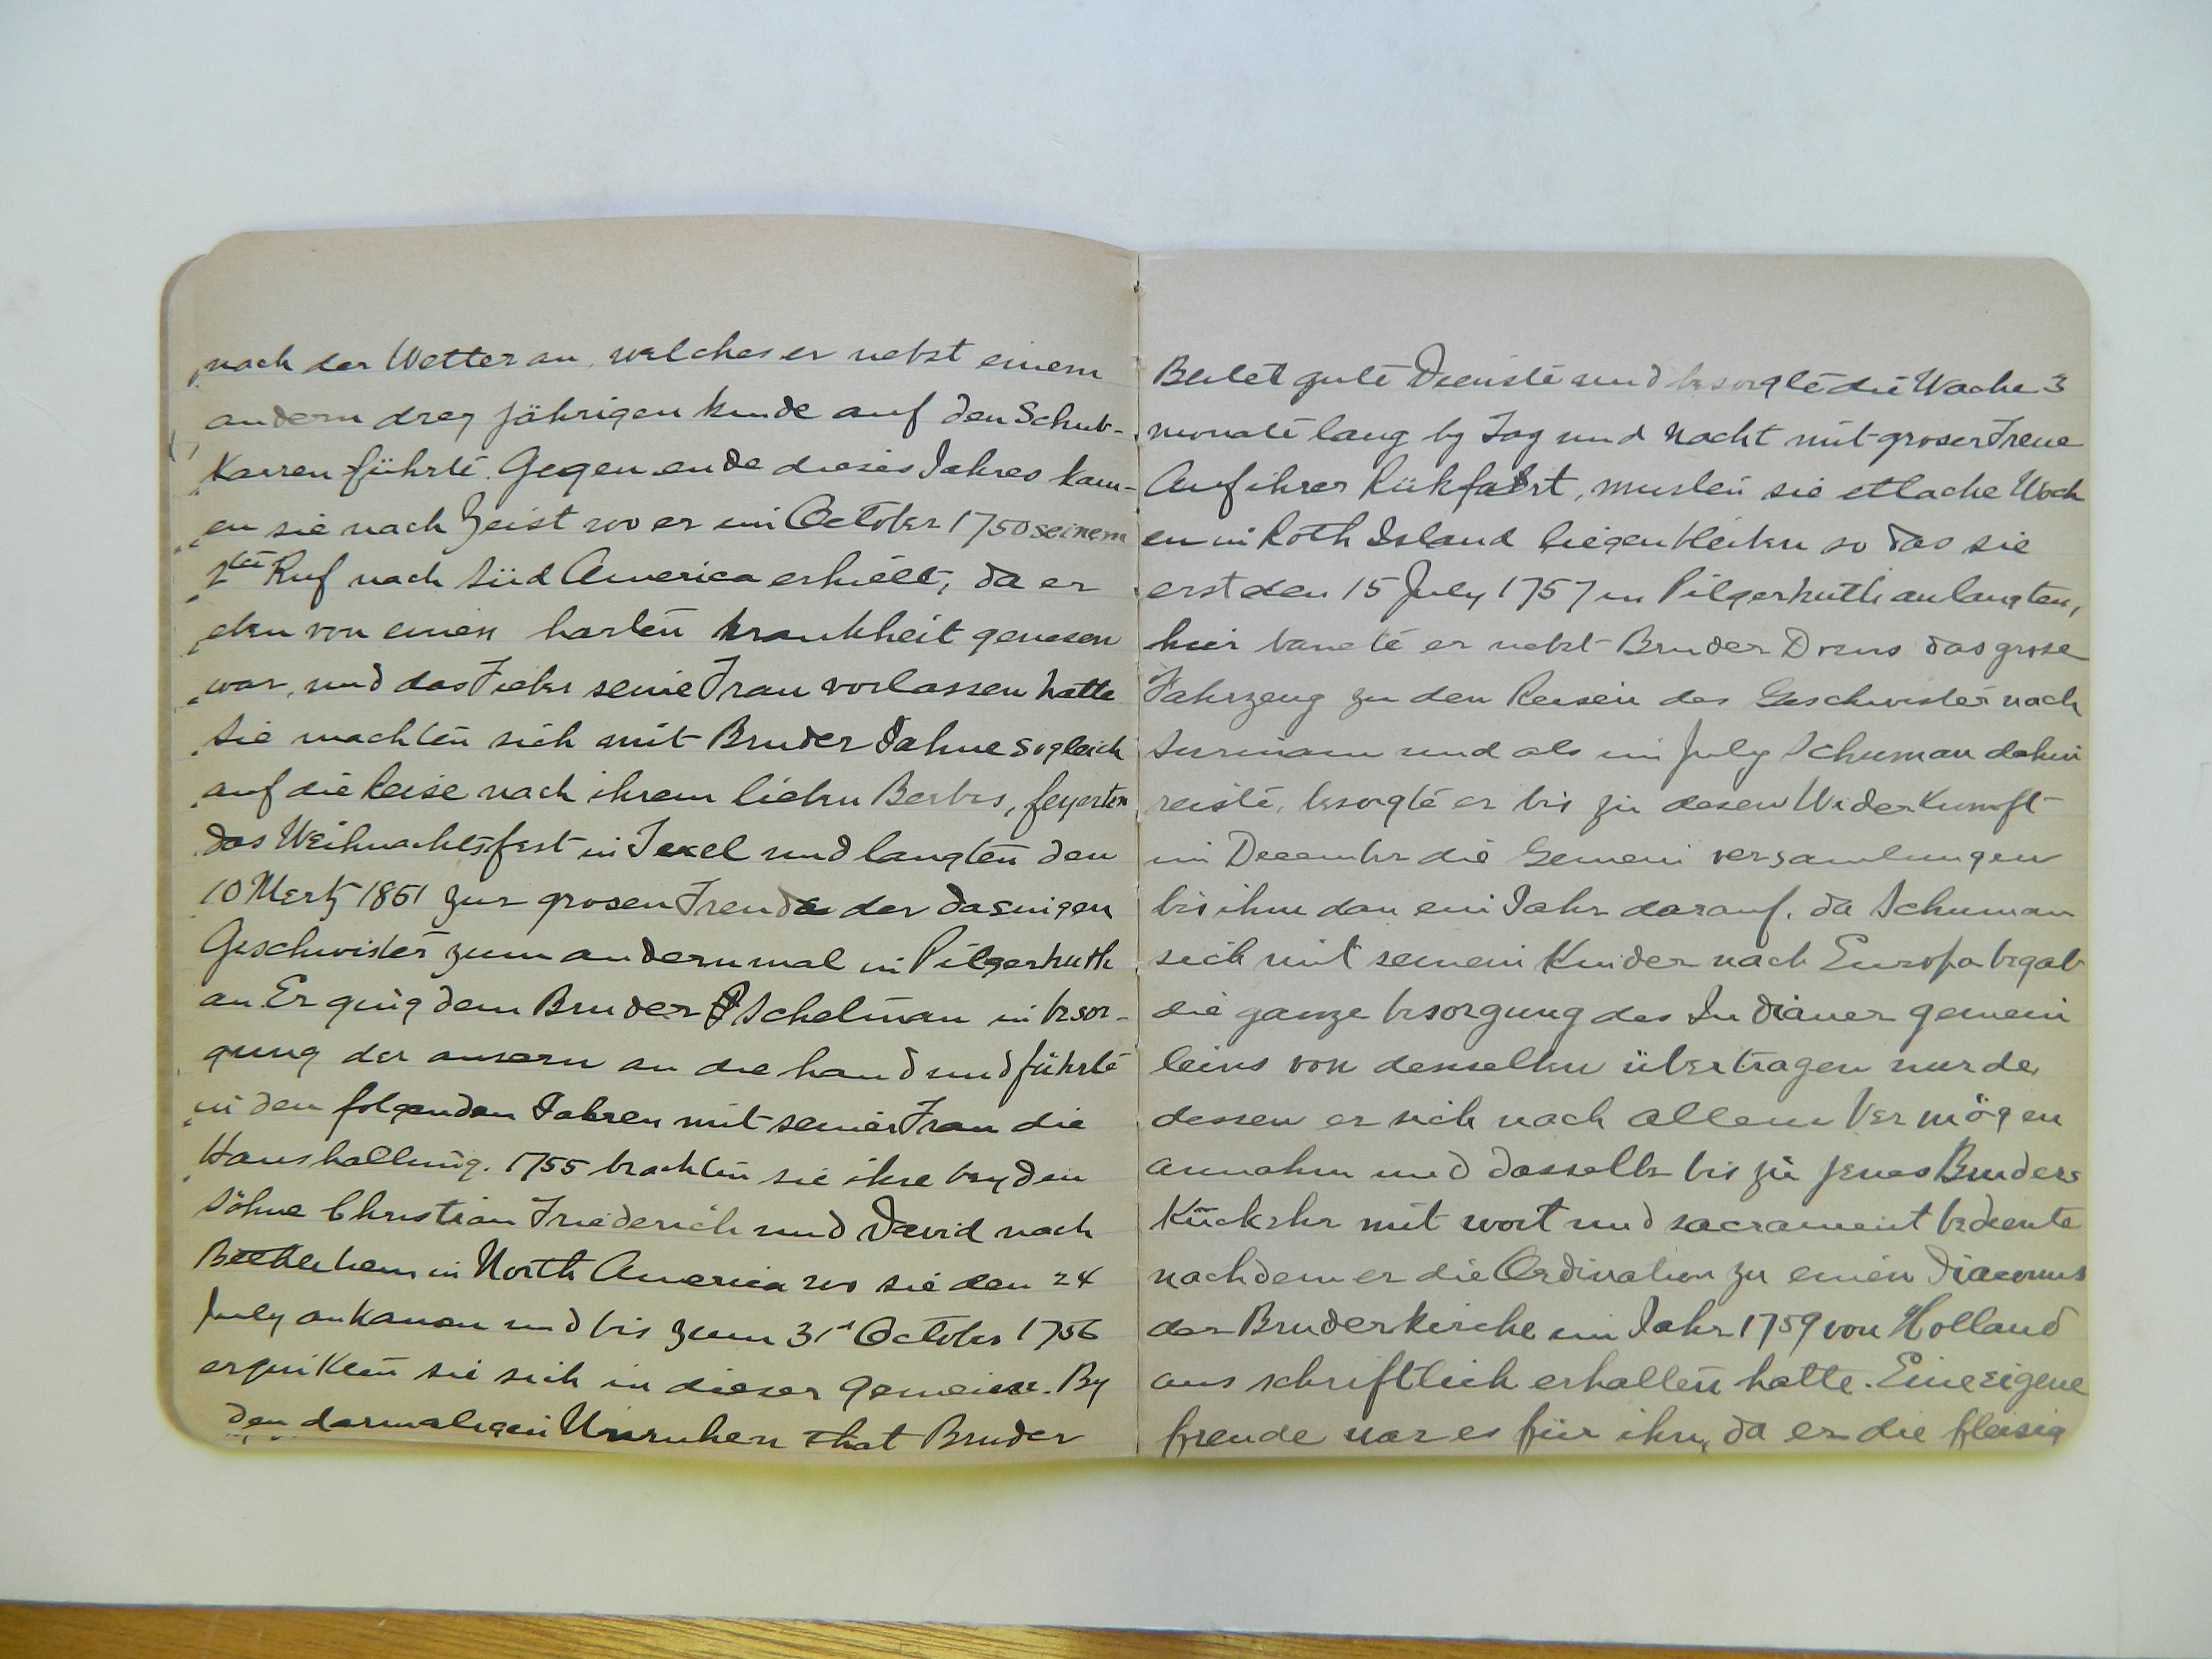 nach der Wetter an, welches er nebst einem
andern drey jährigen kinde auf den Schub-
Karren führte. Gegen ende dieses Jahres kam-
en sie nach Zeist wo er im October 1750 seinem
2ten Ruf nach Süd America erhielt, da er
eben von einen harten krankheit genesen
war, und das Fieber seine Frau verlassen hatte
Sie machten sich mit Bruder Dahne sogleich
auf die Reise nach ihrem lieben Berbes, feyerten
das Weihnachtsfest in Texel und langten den
10 Mertz 1851 zur grosen Freude der dasigen
Geschwister zum andernmal in Pilgerhuth
an Er ging dem Bruder Schelman in besor-
gung der aussern an die hand und führte
in den folgenden Jahren mit seiner Frau die
Haushaltung. 1755 brachten sie ihre beyden
Söhne Christian Friederich und David nach
Bethlehem in North America wo sie den 24
July ankamen und bis zum 31st October 1756
erquikten sie sich in dieser Gemeine. By
den darmaligen Unruhen that Bruder
Beutel gute Dienste und besorgte die Wache 3
monate lang by Tag und Nacht mit groser Treue
Auf ihrer Rükfahrt, musten sie etlache Woch
en in Roth Island liegen bleiben so das sie
erst den 15 July 1757 in Pilgerhuth anlangten,
hier bauete er nebst Bruder das grose
Fahrzeug zu den Reisen des Geschwister nach
Surinam und als im July Schuman dahin
reiste, besorgte er bis zu desen Widerkunft
im December die Gemein versamlungen
bis ihm dan ein Jahr darauf, da Schuman
sich mit seinem Kinder nach Europa begab
die ganze besorgung des Indianer gemein
leins von demselben übertragen wurde,
dessen er sich nach allem Vermögen
annahm und dasselbe bis zu jenes Bruders
Rückehr mit wort und sacrament bediente
nachdem er die Ordination zu einen Diaconus
der Bruderkirche im Jahr 1759 von Holland
aus schriftlich erhalten hatte. Eine eigene
freude war es für ihn, da er die fleisig